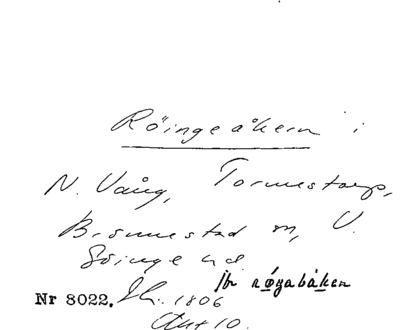 Röingeåkern i
N. Vång, Tormestorp,
Brönnestad sn, V.
Göinge hd.
Jfr røgabåken
Nr 8022. Sk. 1806
Akt 10.